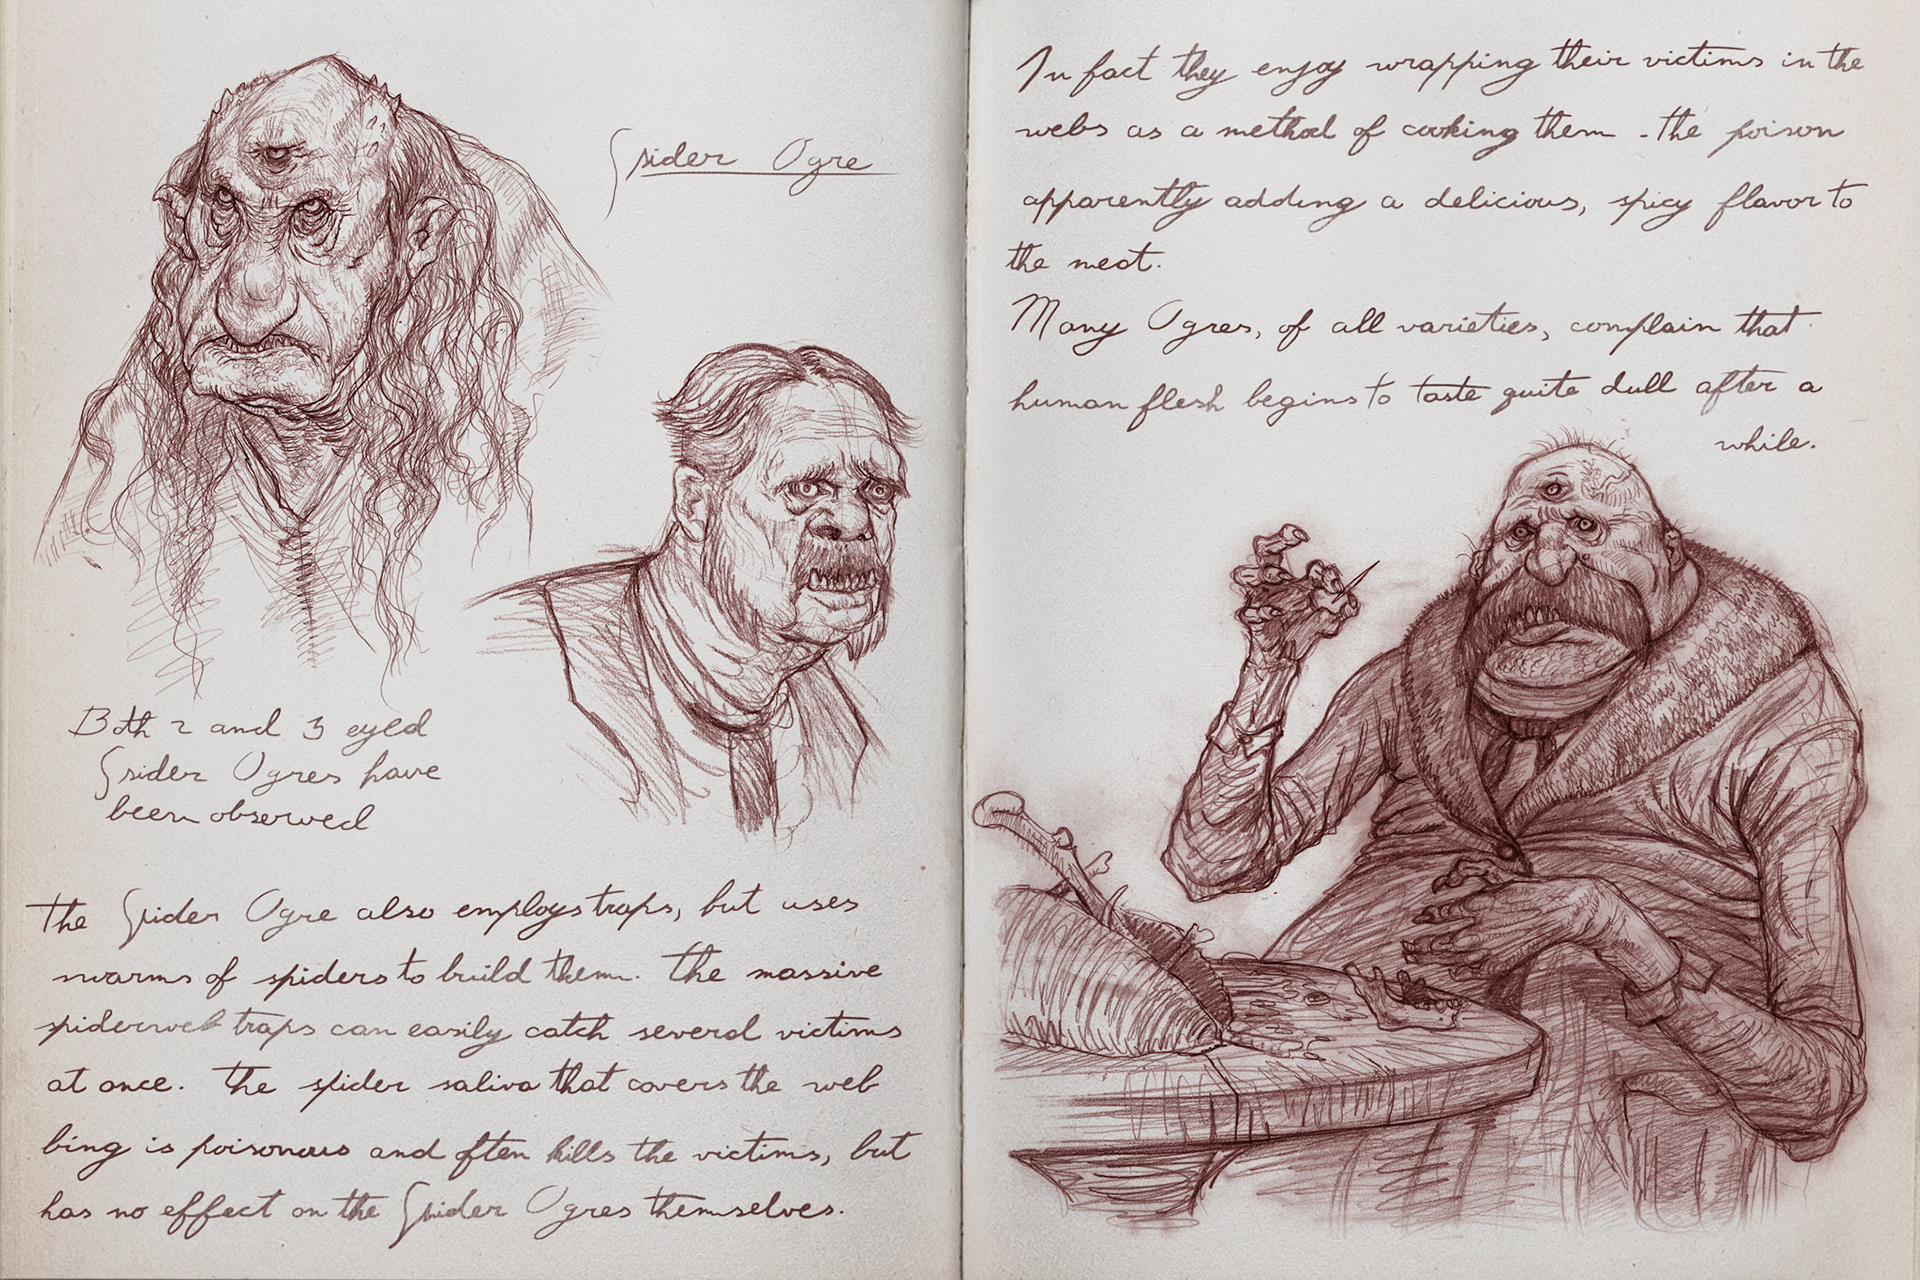 Spider Ogre
Both 2 and 3 eyed
Spider Ogres have
been observed
The Spider Ogre also employs traps, but uses
swarms of spiders to build them. The massive
spiderweb traps can easily catch several victims
at once. The spider saliva that covers the web
bing is poisonous and often kills the victims, but
has no effect on the Spider Ogres themselves.
In fact they enjoy wrapping their victims in the
webs as a method of cooking them - the poison
apparently adding a delicious, spicy flavor to
the meat.
Many Ogres, of all varieties, complain that
human flesh begins to taste quite dull after a
while.